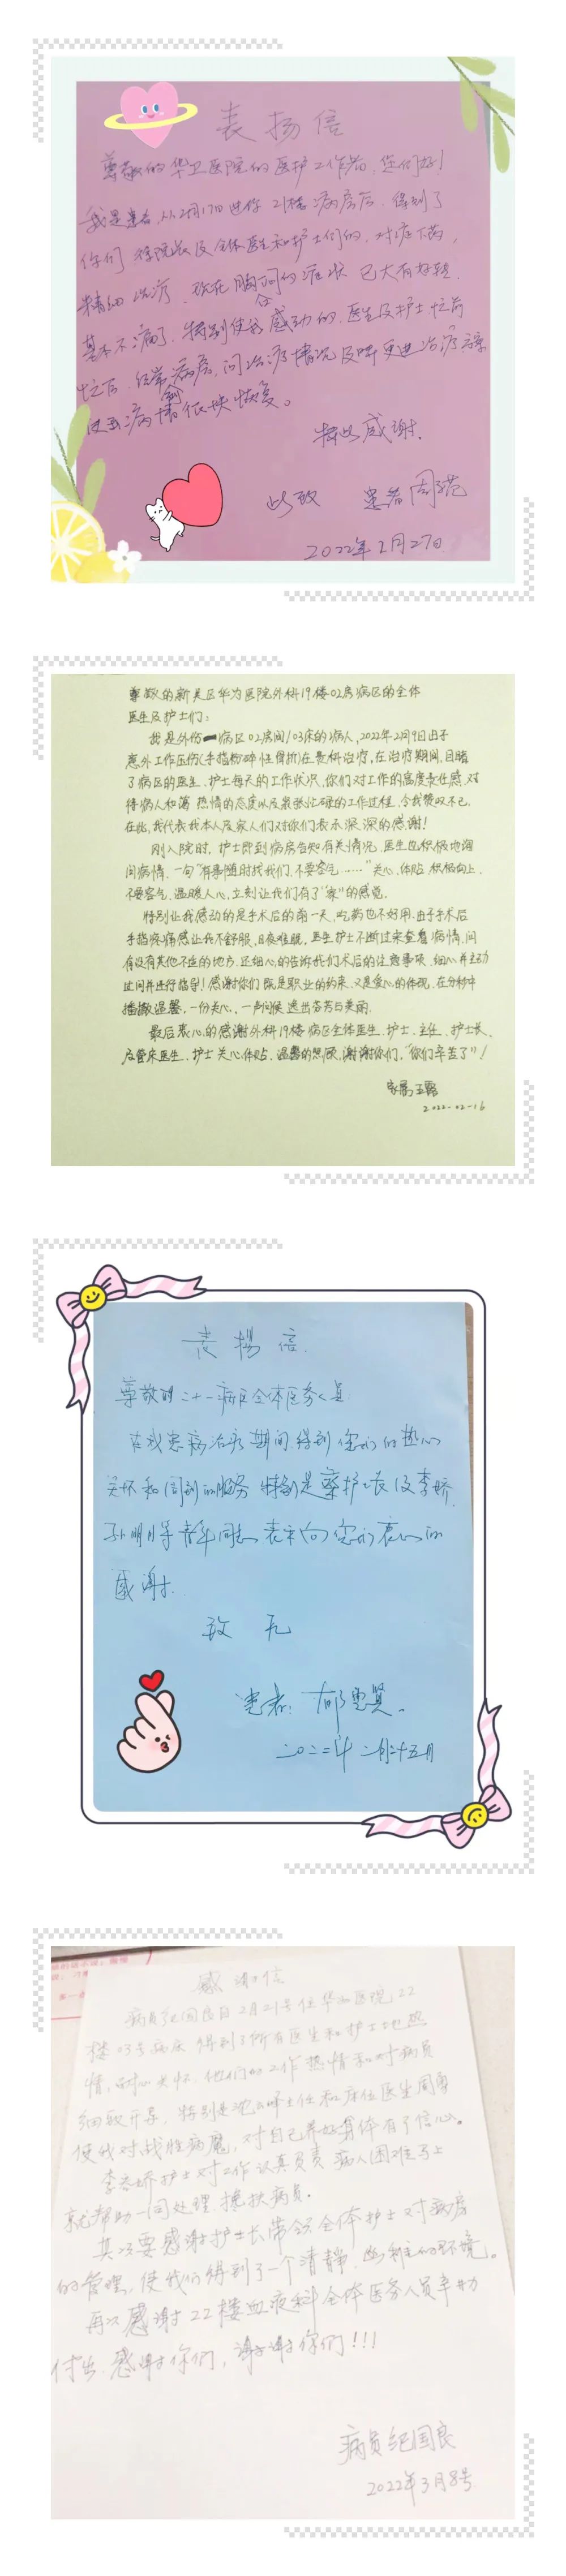 表扬信
尊敬的华卫医院的医护工作者，您们好！
我是患者，从2月17日进你21楼病房后，得到了
你们 院长及全体医生和护士们的，对症下药，
精细治疗，现在胸 的症状已大有好转，
基本不痛了，特别使我感动的，医生及护士忙前
忙后，经常 病房，问治疗情况及 更进治疗方案
使 病情很快恢复。
特此感谢。
此致 患者周
2022年2月27日
尊敬的新吴区华为医院外科19楼02房病区的全体
医生及护士们：
我是外伤一病区02房间/03床的病人，2022年2月9日由于
意外工作压伤(手指粉碎性骨折)在贵科治疗，在治疗期间，目睹
了病区的医生、护士每天的工作状况，你们对工作的高度责任感，对
待病人和蔼 热情的态度以及紧张忙碌的工作过程，令我赞叹不已，
在此，我代表我本人及家人们对你们表示深深的感谢！
刚入院时，护士即到病房告知有关情况，医生也积极地询
问病情，一句“有事随时找我们，不要客气……”关心、体贴、积极向上，
不要客气，温暖人心，立刻让我们有了“家”的感觉。
特别让我感动的是手术后的前一天，吃药也不好用，由于手术后
手指疼痛感让我不舒服，日夜难眠，医生护士不断过来查看病情，问
有没有其他不适的地方，还细心的告诉我们术后的注意事项，细心并主动
过问并进行指导！感谢你们既是职业的约束，又是爱心的体现，在分秒中
播撒温馨，一份关心，一声问候，透出芬芳与美丽。
最后衷心的感谢外科19楼病区全体医生、护士、主任、护士长、
及管床医生、护士关心、体贴、温馨的照顾，谢谢你们，“你们辛苦了”！
家属：王
2022-02-16
表扬信
尊敬的二十一病区全体医务人员
在我患病治疗期间，得到您们的热心
关怀和周到的服务 特别是蔡护士长及李娇
孙明月等青年同志 表示向您们衷心的
感谢。
致 礼
患者：郁 贤
二〇二二年 二月二十五日
感谢信
病员纪国良自2月21号住华 医院22
楼03号病床 得到了所有医生和护士土地热
情，耐心关怀，他们的工作热情和对病员
细致开导，特别是沈 峰主任和床位医生周
使我对战胜病魔，对自己养好身体有了信心。
李 娇护士对工作认真负责 病人困难马上
就帮助一同处理，搀扶病员。
其次要感谢护士长带领全体护士对病房
的管理，使我们得到了一个清静、 的环境。
再次感谢22楼血液科全体医务人员辛勤
付出，感谢你们，谢谢你们！！！
病员纪国良
2022年3月8号